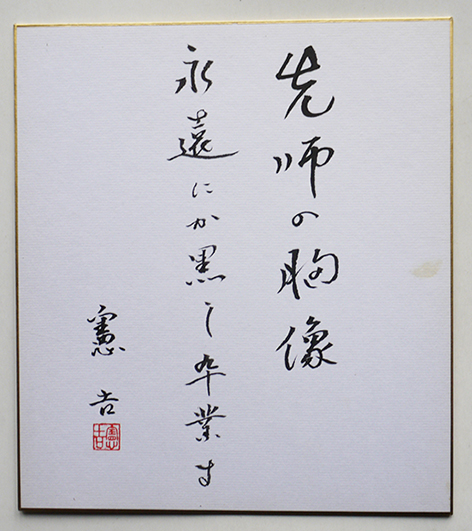 先師の胸像
永遠にか黒し卒業す
憲吉
憲吉